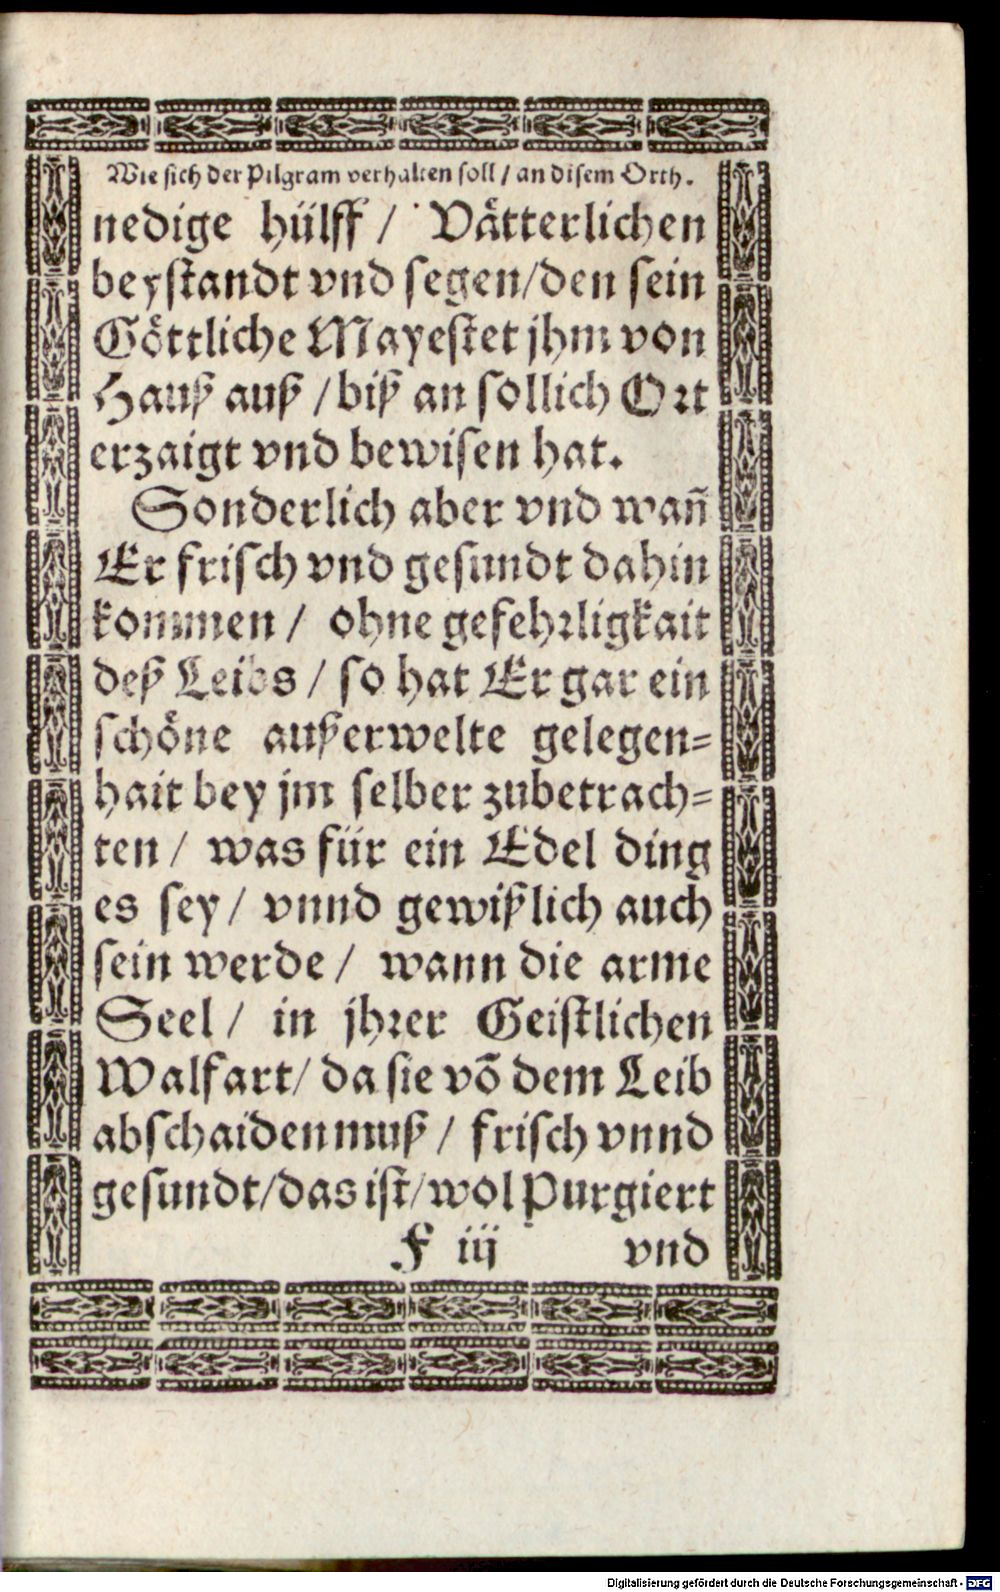 Wie sich der Pilgram verhalten soll / an disem Orth.
nedige hülff / Vätterlichen
beystandt vnd segen/den sein
Göttliche Mayestet jhm von
Hauß auß / biß an sollich Ort
erzaigt vnd bewisen hat.
Sonderlich aber vnd wañ
Er frisch vnd gesundt dahin
kommen / ohne gefehrligkait
deß Leibs / so hat Er gar ein
schöne außerwelte gelegen=
hait bey jm selber zubetrach=
ten / was für ein Edel ding
es sey / vnnd gewißlich auch
sein werde / wann die arme
Seel / in jhrer Geistlichen
Walfart/ da sie võ dem Leib
abschaiden muß / frisch vnnd
gesundt/das ist/wol Purgiert
F iij vnd
Digitalisierung gefördert durch die Deutsche Forschungsgemeinschaft - DFG